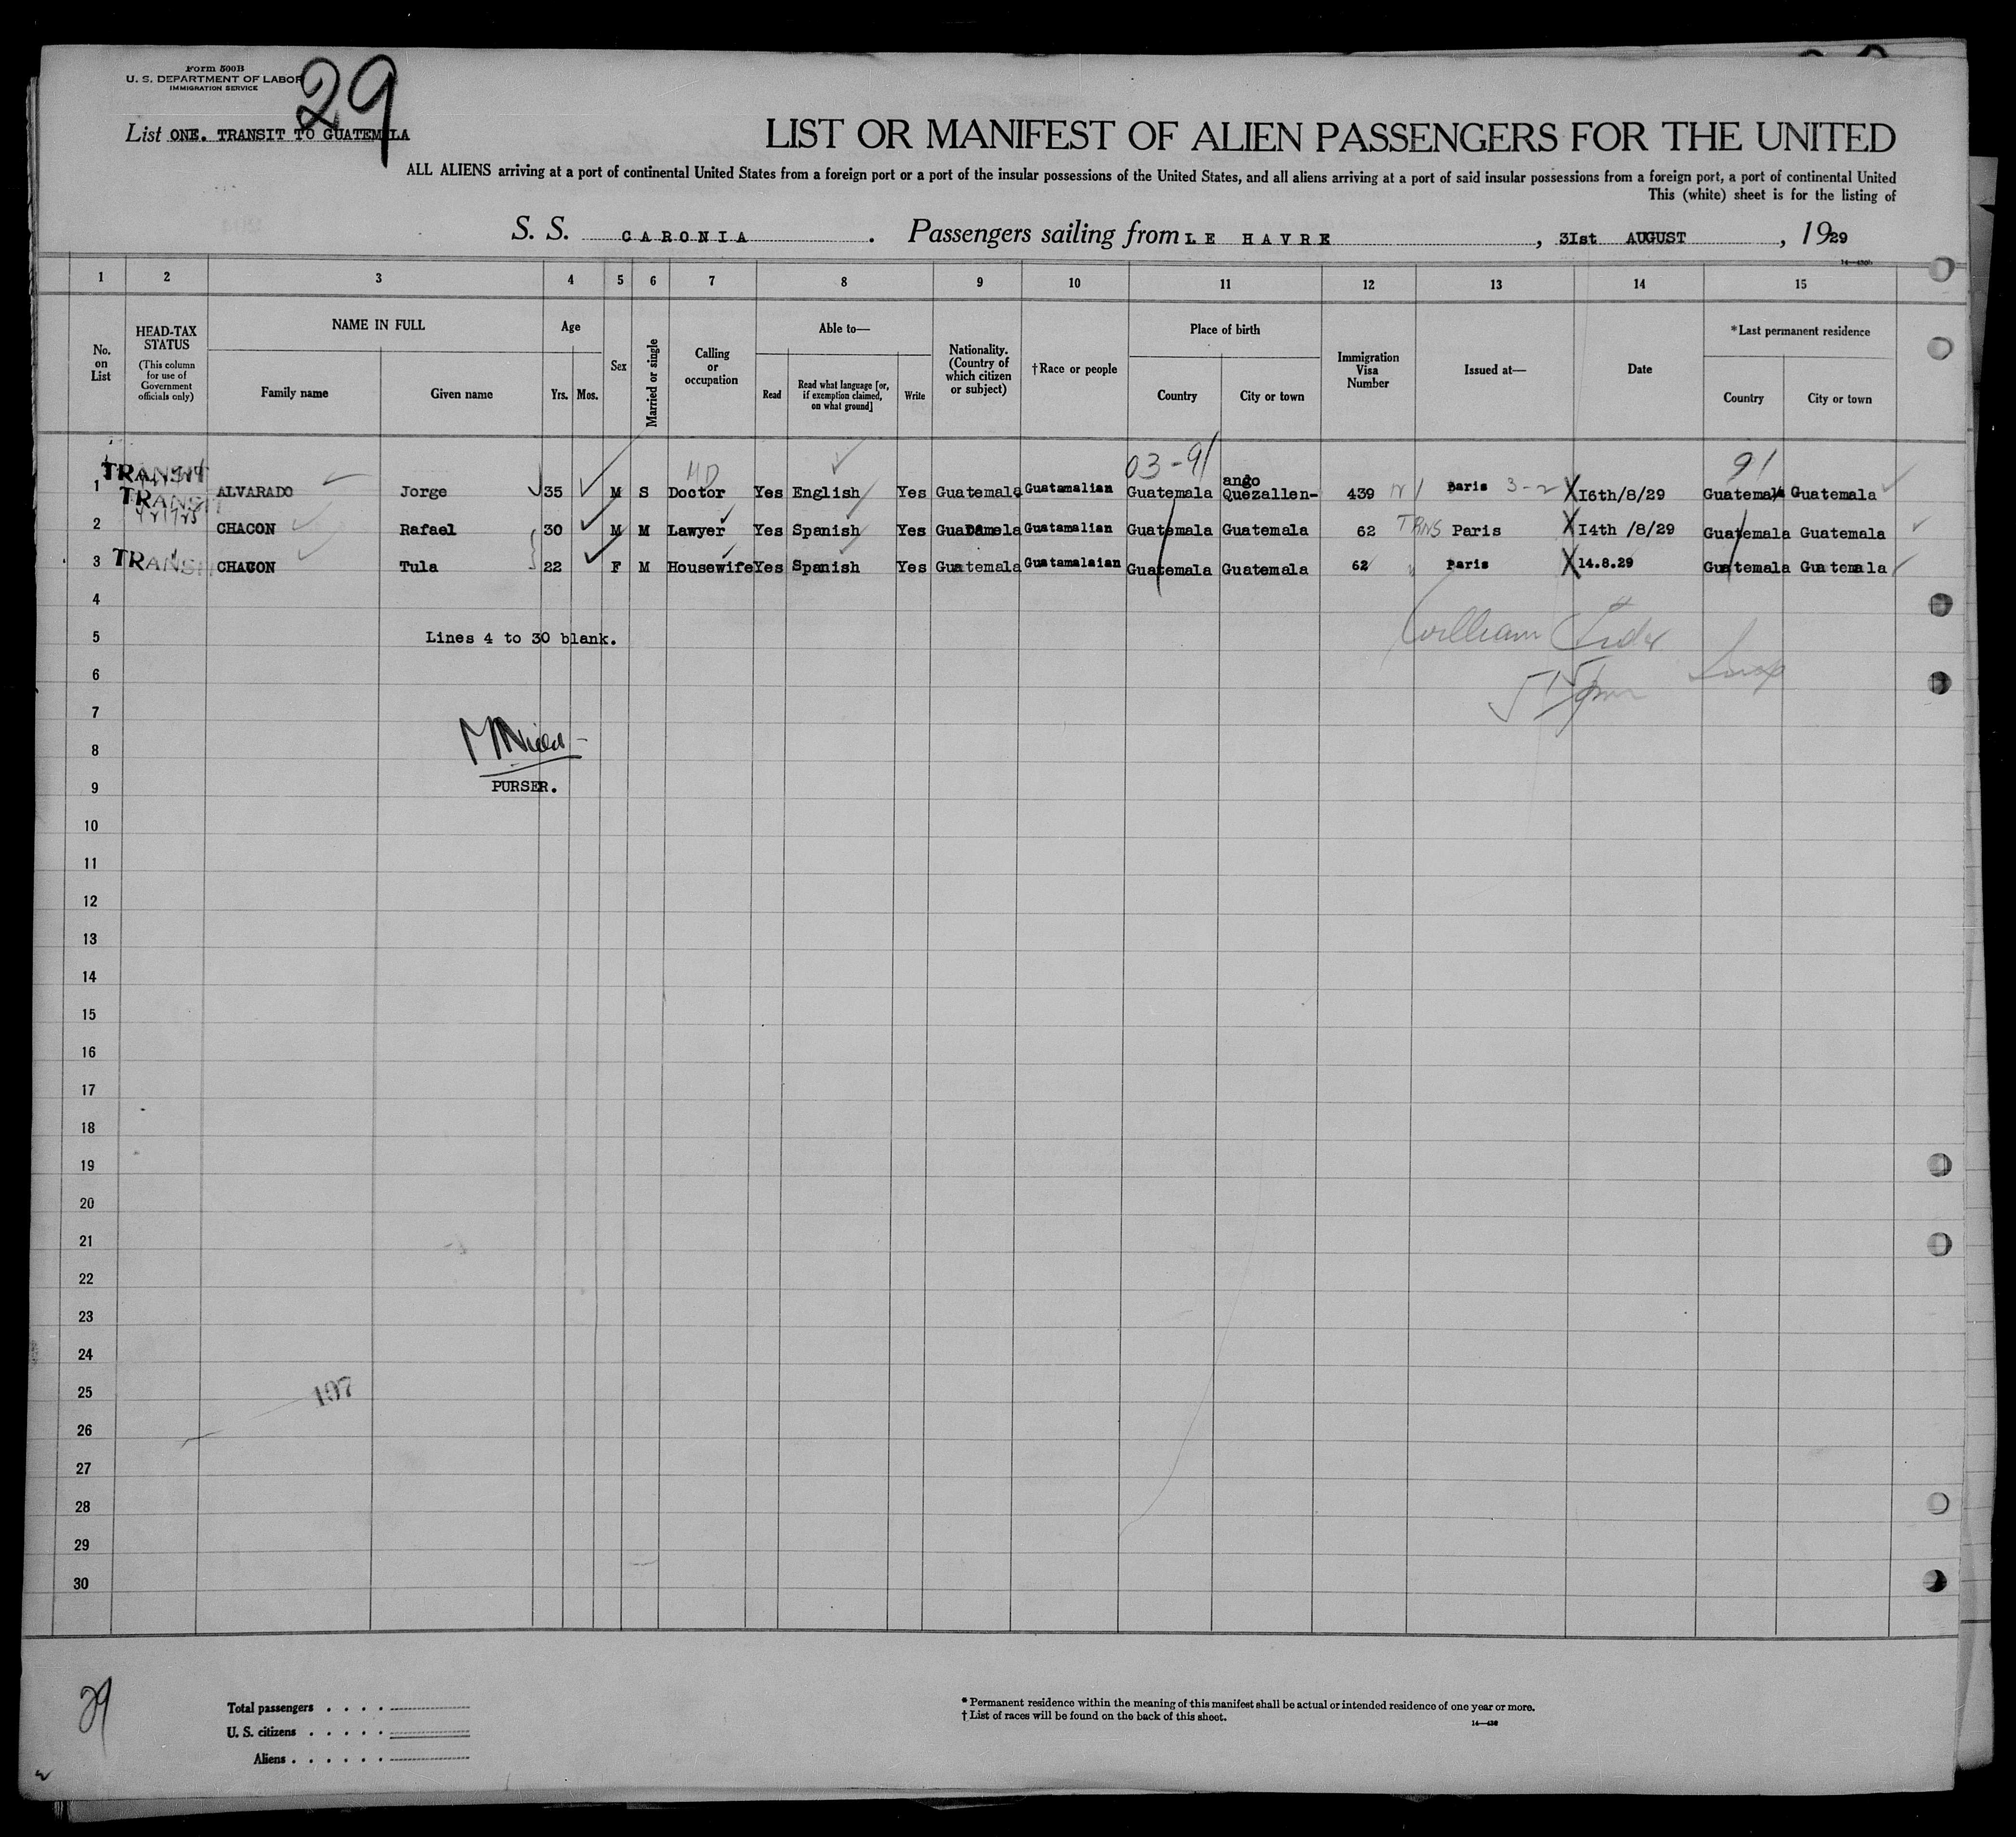 Form 500B
U. S. DEPARTMENT OF LABOR
IMMIGRATION SERVICE
29
List ONE. TRANSIT TO GUATEMALA
LIST OR MANIFEST OF ALIEN PASSENGERS FOR THE UNITED
ALL ALIENS arriving at a port of continental United States from a foreign port or a port of the insular possessions of the United States, and all aliens arriving at a port of said insular possessions from a foreign port, a port of continental United
This (white) sheet is for the listing of
S. S. CARONIA . Passengers sailing from LE HAVRE , 31st AUGUST , 1929
1 2 3 4 5 6 7 8 9 10 11 12 13 14 15
No. on List
HEAD-TAX STATUS
(This column for use of Government officials only)
NAME IN FULL
Family name Given name
Age
Yrs. Mos.
Sex
Married or single
Calling or occupation
Able to—
Read
Read what language [or, if exemption claimed, on what ground]
Write
Nationality. (Country of which citizen or subject)
†Race or people
Place of birth
Country City or town
Immigration Visa Number
Issued at—
Date
*Last permanent residence
Country City or town
MD 03-91 91
TRANSIT
1 ALVARADO Jorge 35 M S Doctor Yes English Yes Guatemala Guatamalian Guatemala ango Quezallen- 439 Paris 3-2 X 16th/8/29 Guatemala Guatemala
TRANSIT
2 CHACON Rafael 30 M M Lawyer Yes Spanish Yes Guatamela Guatamalian Guatemala Guatemala 62 TRNS Paris X 14th /8/29 Guatemala Guatemala
3 TRANSIT CHACON Tula 22 F M Housewife Yes Spanish Yes Guatemala Guatamalaian Guatemala Guatemala 62 Paris X 14.8.29 Guatemala Guatemala
4
5 Lines 4 to 30 blank.
William
6
7
8
9 PURSER.
10
11
12
13
14
15
16
17
18
19
20
21
22
23
24
25 197
26
27
28
29
30
29
Total passengers
U. S. citizens
Aliens
* Permanent residence within the meaning of this manifest shall be actual or intended residence of one year or more.
† List of races will be found on the back of this sheet.
14—430